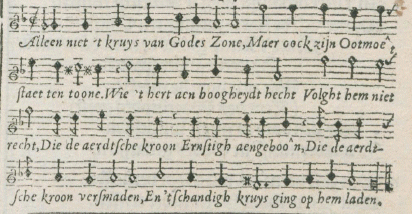 Alleen niet 't kruys van Godes Zone, Maer oock zijn Ootmoe^t
staet ten toone. Wie 't hert aen hoogheydt hecht Volght hem niet
recht, Die de aerdtsche kroon Ernstigh aengeboo^n, Die de aerdt-
sche kroon versmaden, En 'tschandigh kruys ging op hem laden.